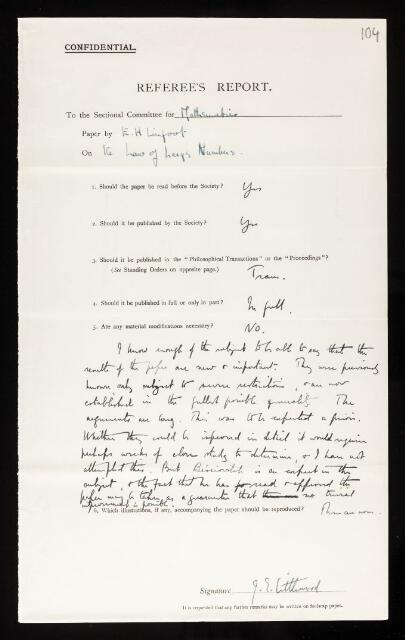 104
CONFIDENTIAL.
REFEREE'S REPORT.
To the Sectional Committee for Mathematics
Paper by E. H. Linfoot
On the Law of Large Numbers.
1. Should the paper be read before the Society? Yes
2. Should it be published by the Society? Yes
3. Should it be published in the "Philosophical Transactions" or the "Proceedings"?
(See Standing Orders on opposite page.) Trans.
4. Should it be published in full or only in part? In full
5. Are any material modifications necessary? No.
I know enough of the subject to be able to say that the
results of the paper are new & important. They were previously
known only subject to severe restrictions, & are now
established in the fullest possible generality. The
arguments are long. This was to be expected a priori.
Whether they could be improved in detail it would require
perhaps weeks of close study to determine, & I have not
attempted this. But Besicovitch is an expert in this
subject, & the fact that he has read & approved the
paper may be taken as a guarantee that no trivial
improvement is possible.
6. Which illustrations, if any, accompanying the paper should be reproduced? There are none.
Signature J. E. Littlewood
It is requested that any further remarks may be written on foolscap paper.